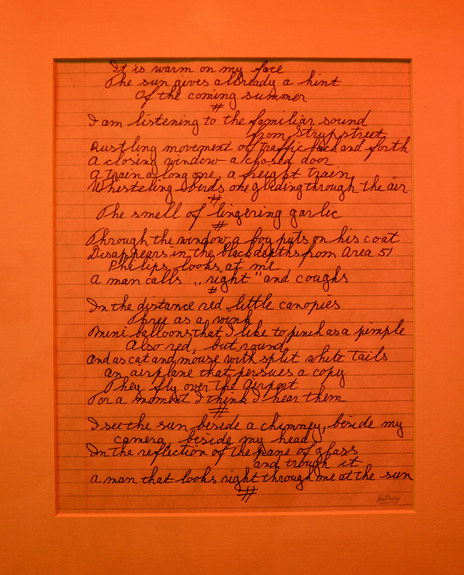 It is warm on my face
The sun gives allready a hint
Of the coming summer
#
I am listening to the familiar sound
from Strypstreet
Rustling movement of traffic back and forth
a closing window a closed door
a train a long one, a freight train
Whisteling birds one gleding through the air
#
The smell of lingering garlic
#
Through the window a boy puts on his coat
Disappears in the black depths from Area 51
Philips looks at me
a man calls ,,right" and coughs
#
In the distance red little canopies
Three as a
Mini balloons that I like to pinch as a pimple
Also red, but round
and as cat and mouse with split white tails
an airplane that persues a copy
They fly over the airport
For a moment I think I hear them
#
I see the sun beside a chimney, beside my
camera, beside my head
In the reflection of the pane of glass
and trough it
a man that looks right through me at the sun
#